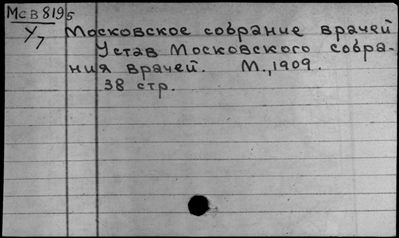 МсВ 8195
У7 Московское собрание врачей
Устав Московского собра-
ния врачей. М., 1909.
38 стр.